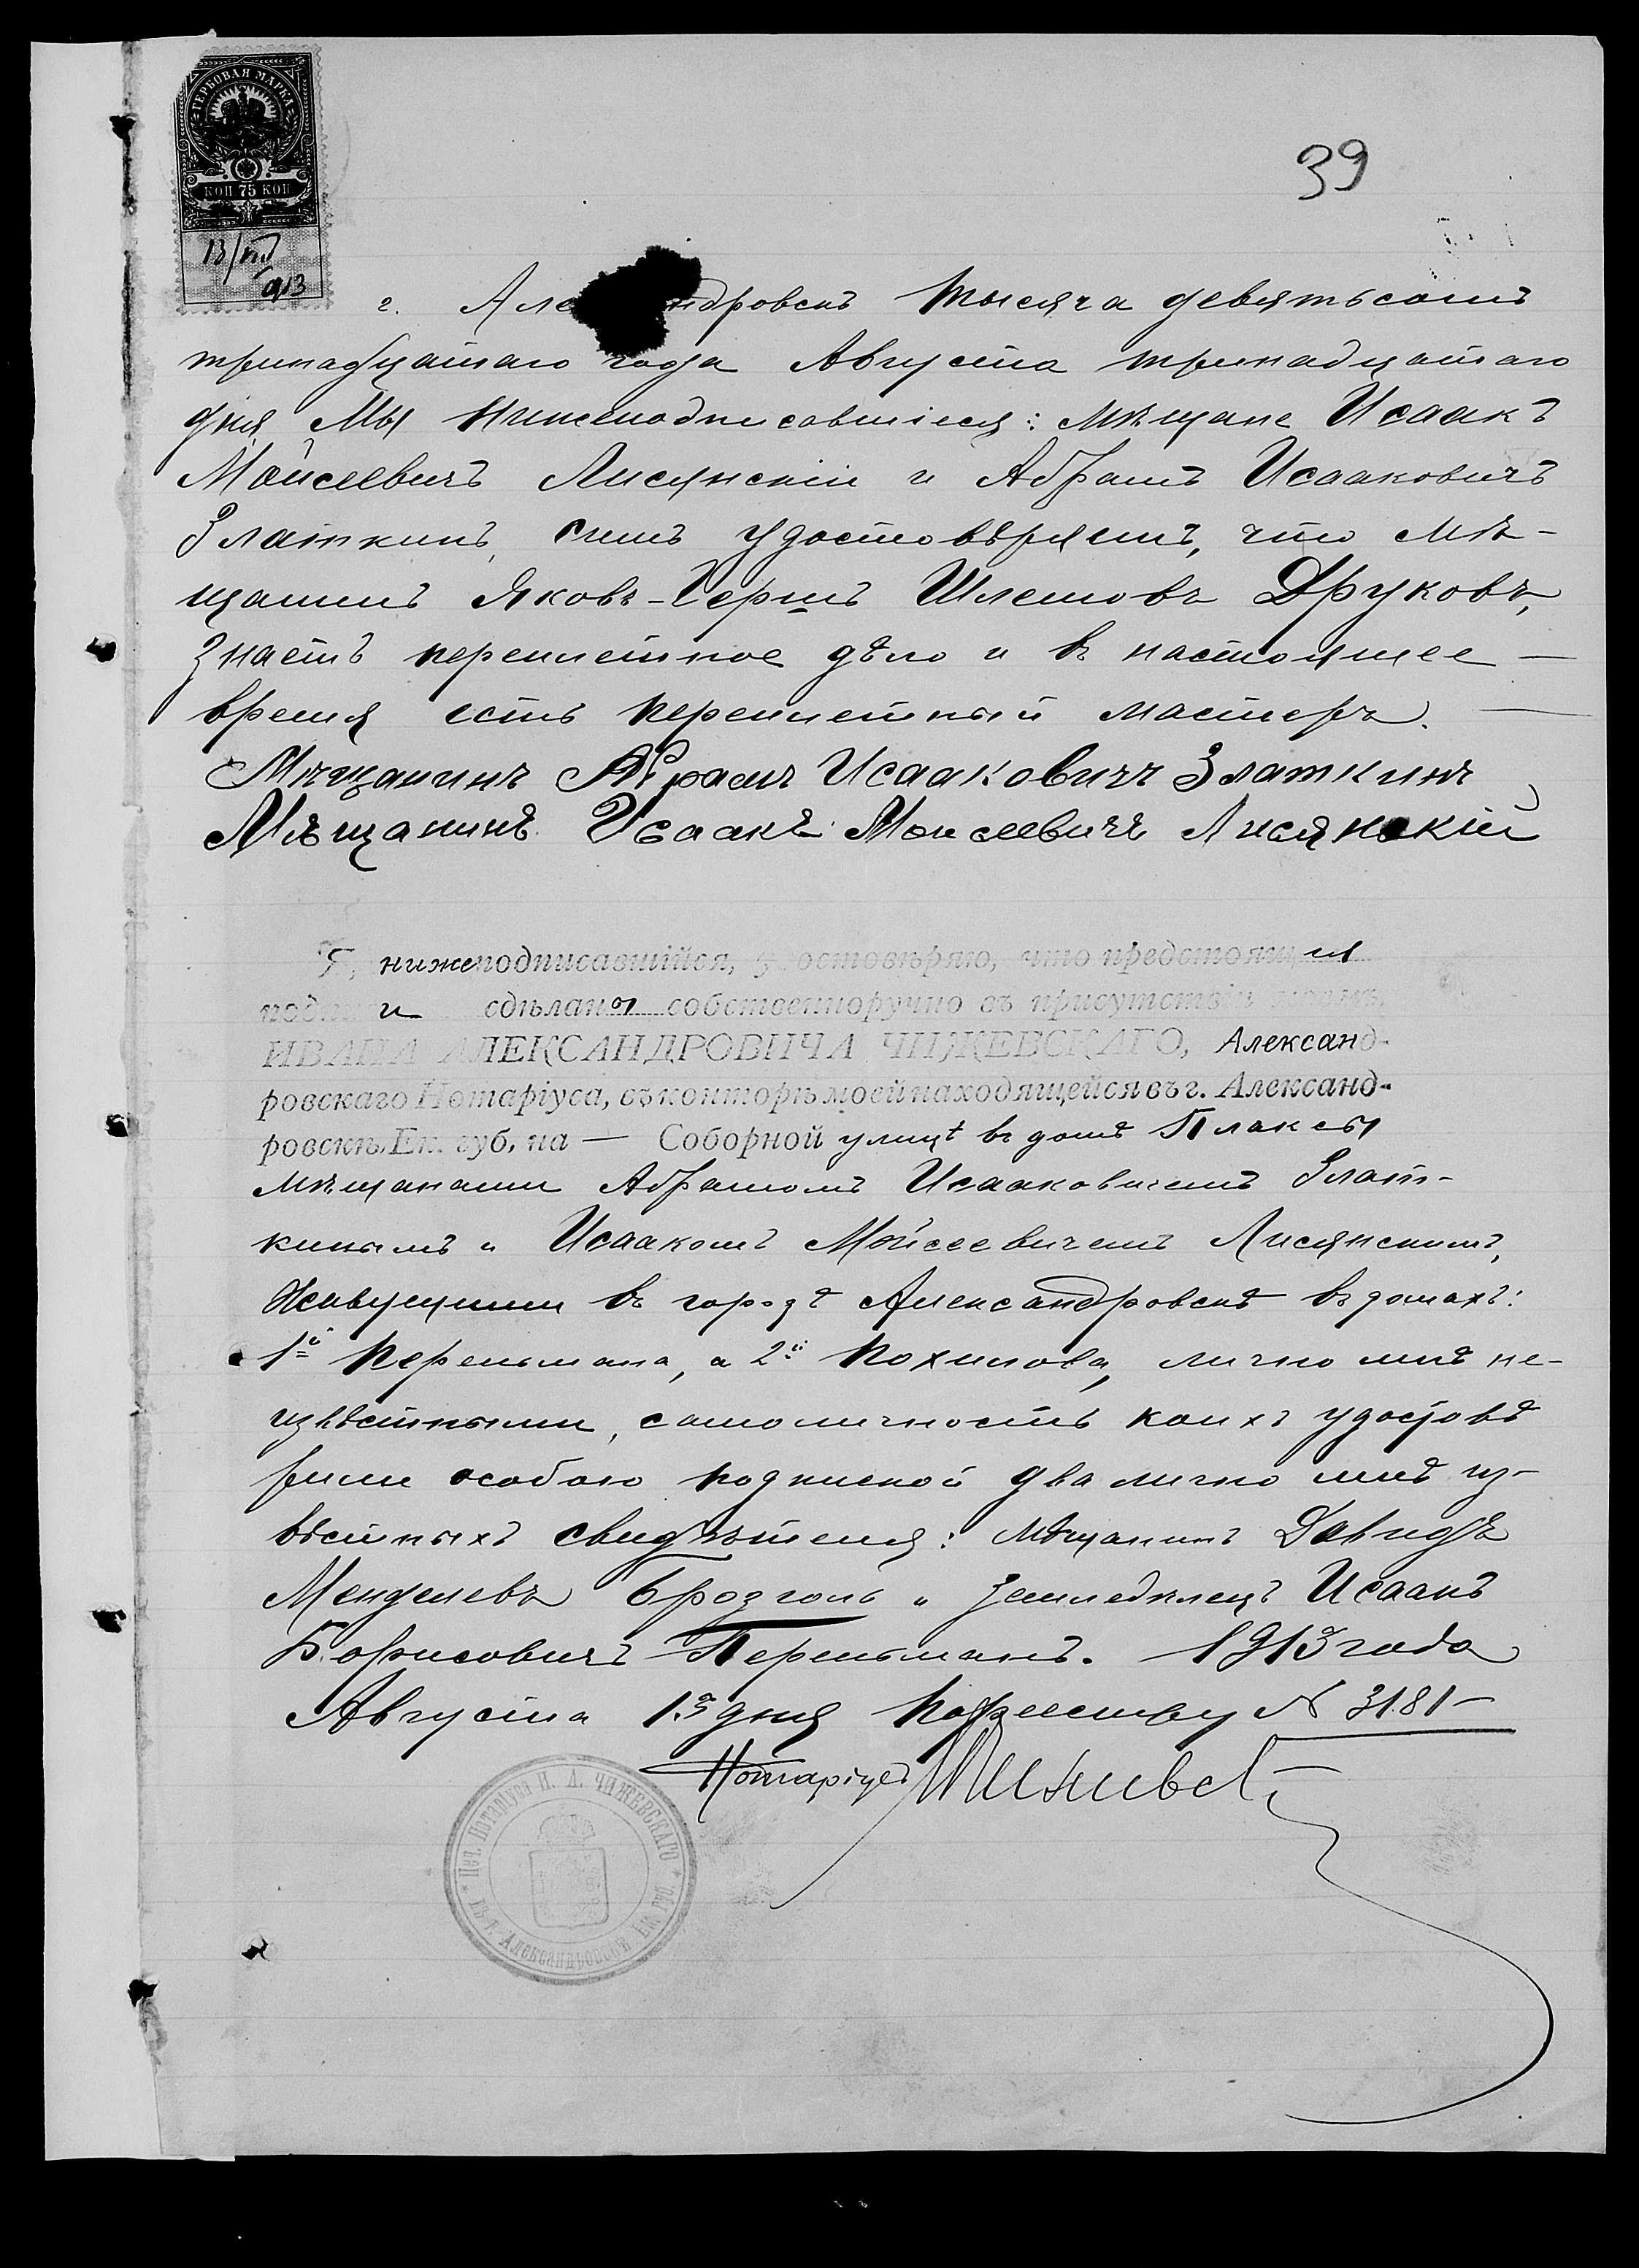 ГЕРБОВАЯ МАРКА
КОП 75 КОП
13/VIII
913
39
г. Александровскъ Тысяча девятьсотъ
тринадцатаго года Августа тринадцатаго
дня Мы нижеподписавшіеся: мѣщане Исаакъ
Мойсеевичъ Лисянскій и Абрамъ Исааковичъ
Златкинъ, симъ удостовѣряемъ, что мѣ-
щанинъ Яковъ-Гершъ Шлемовъ Друковъ,
знаетъ переплетное дѣло и въ настоящее —
время есть переплетный мастеръ. —
Мѣщанинъ Абрамъ Исааковичъ Златкинъ
Мѣщанинъ Исаакъ Моисеевичъ Лисянскій
Я, нижеподписавшійся, удостовѣряю, что предстоящія
подписи сдѣланы собственноручно въ присутствіи моемъ,
ИВАНА АЛЕКСАНДРОВИЧА ЧИЖЕВСКАГО, Александ-
ровскаго Нотаріуса, въ конторѣ моей находящейся въ г. Александ-
ровскѣ, Ек. губ, на — Соборной улицѣ въ домѣ Плаксы
мѣщанами Абрамомъ Исааковичемъ Злат-
кинымъ и Исаакомъ Мойсеевичемъ Лисянскимъ,
живущими въ городѣ Александровскѣ въ домахъ:
1й Перельмана, а 2й Похилова, лично мнѣ не-
извѣстными, самоличность коихъ удостовѣ
рили особою подпиской два лично мнѣ из-
вѣстныхъ свидѣтеля: мѣщанинъ Давидъ
Менделевъ Брозголь и земледѣлецъ Исаакъ
Борисовичъ Перельманъ. 1913 года
Августа 13 дня По реестру № 3181 —
Нотаріусъ
Печ. Нотаріуса И. А. ЧИЖЕВСКАГО
въ г. Александровскѣ Ек. губ.